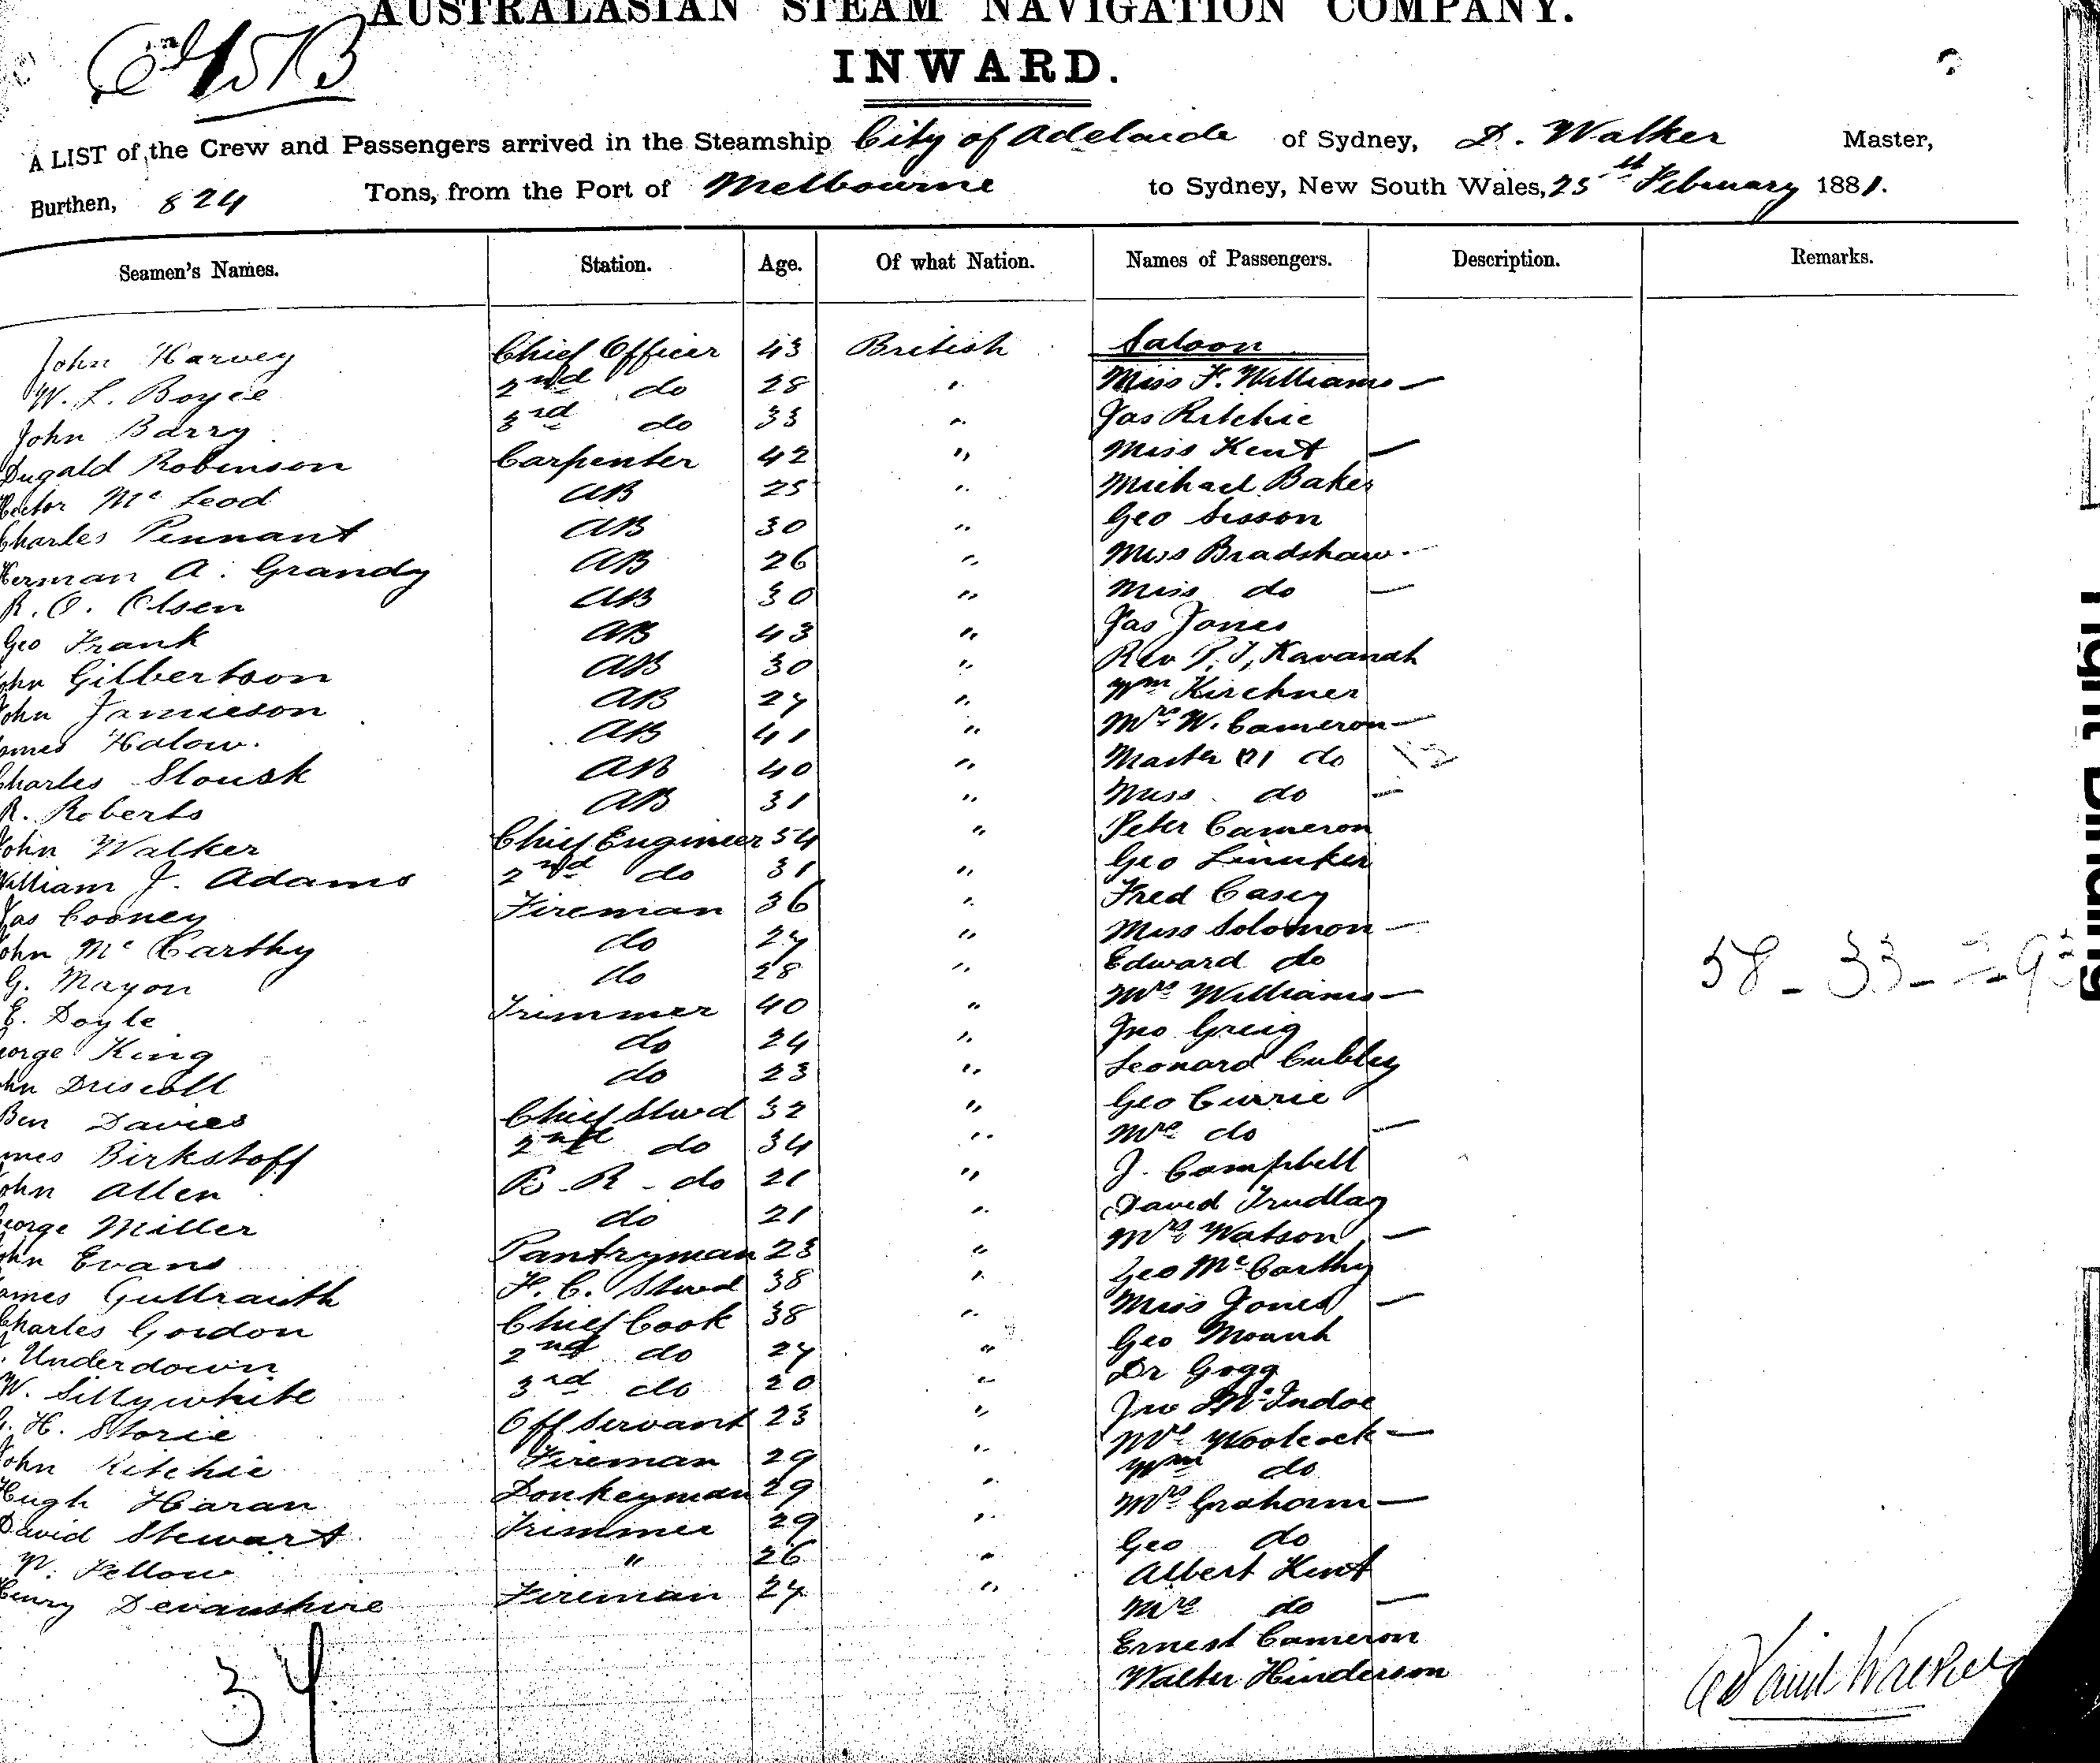 AUSTRALASIAN STEAM NAVIGATION COMPANY.
INWARD.
A LIST of the Crew and Passengers arrived in the Steamship City of Adelaide of Sydney, D. Walker Master,
Burthen, 824 Tons, from the Port of Melbourne to Sydney, New South Wales, 25th February 1881.
Seamen's Names. Station. Age. Of what Nation. Names of Passengers. Description. Remarks.
John Harvey Chief Officer 43 British Saloon
W. L. Boyce 2nd do 28 " Miss F. Williams —
John Barry 3rd do 33 " Jas Ritchie
Dugald Robinson Carpenter 42 " Miss Kent —
Hector Mc Leod AB 25 " Michael Baker
Charles Pennant AB 30 " Geo Sisson
Herman A. Grandy AB 26 " Mrs Bradshaw —
R. O. Olsen AB 30 " Miss do —
Geo Frank AB 43 " Jas Jones
John Gilbertson AB 30 " Rev P. J. Kavanah
John Jamieson AB 27 " Wm Kirchner
James Halow. AB 41 " Mrs W. Cameron —
Charles Slousk AB 40 " Master do
R. Roberts AB 31 " Miss do —
John Walker Chief Engineer 54 " Peter Cameron
William J. Adams 2nd do 31 " Geo Linuker
Jas Cooney Fireman 36 " Fred Casey
John Mc Carthy do 27 " Miss Solomon —
G. Mayon do 28 " Edward do
E. Doyle Trimmer 40 " Mrs Williams —
George King do 24 " Jno Greig
John Driscoll do 23 " Leonard Cubley
Ben Davies Chief Stwd 32 " Geo Currie
James Birkstoff 2nd do 34 " Mrs do —
John Allen B. R - do 21 " J. Campbell
George Miller do 21 " David Trudlay
John Evans Pantryman 23 " Mrs Watson —
James Gullraith F. C. Stwd 38 " Geo McCarthy
Charles Gordon Chief Cook 38 " Miss Jones —
Underdown 2nd do 27 " Geo Mounk
W. Sillywhite 3rd do 20 " Dr Gogg
H. Storie Off Servant 23 " Jno McIndoe
John Ritchie Fireman 29 " Mrs Woolcock —
Hugh Haran Donkeyman 29 " Wm do
David Stewart Trimmer 29 " Mrs Graham —
W. Fellow " 26 " Geo do
Henry Devanshire Fireman 27 " Albert Kent
Mrs do —
Ernest Cameron
Walter Hinderson
58 - 33 -
37
David Walker